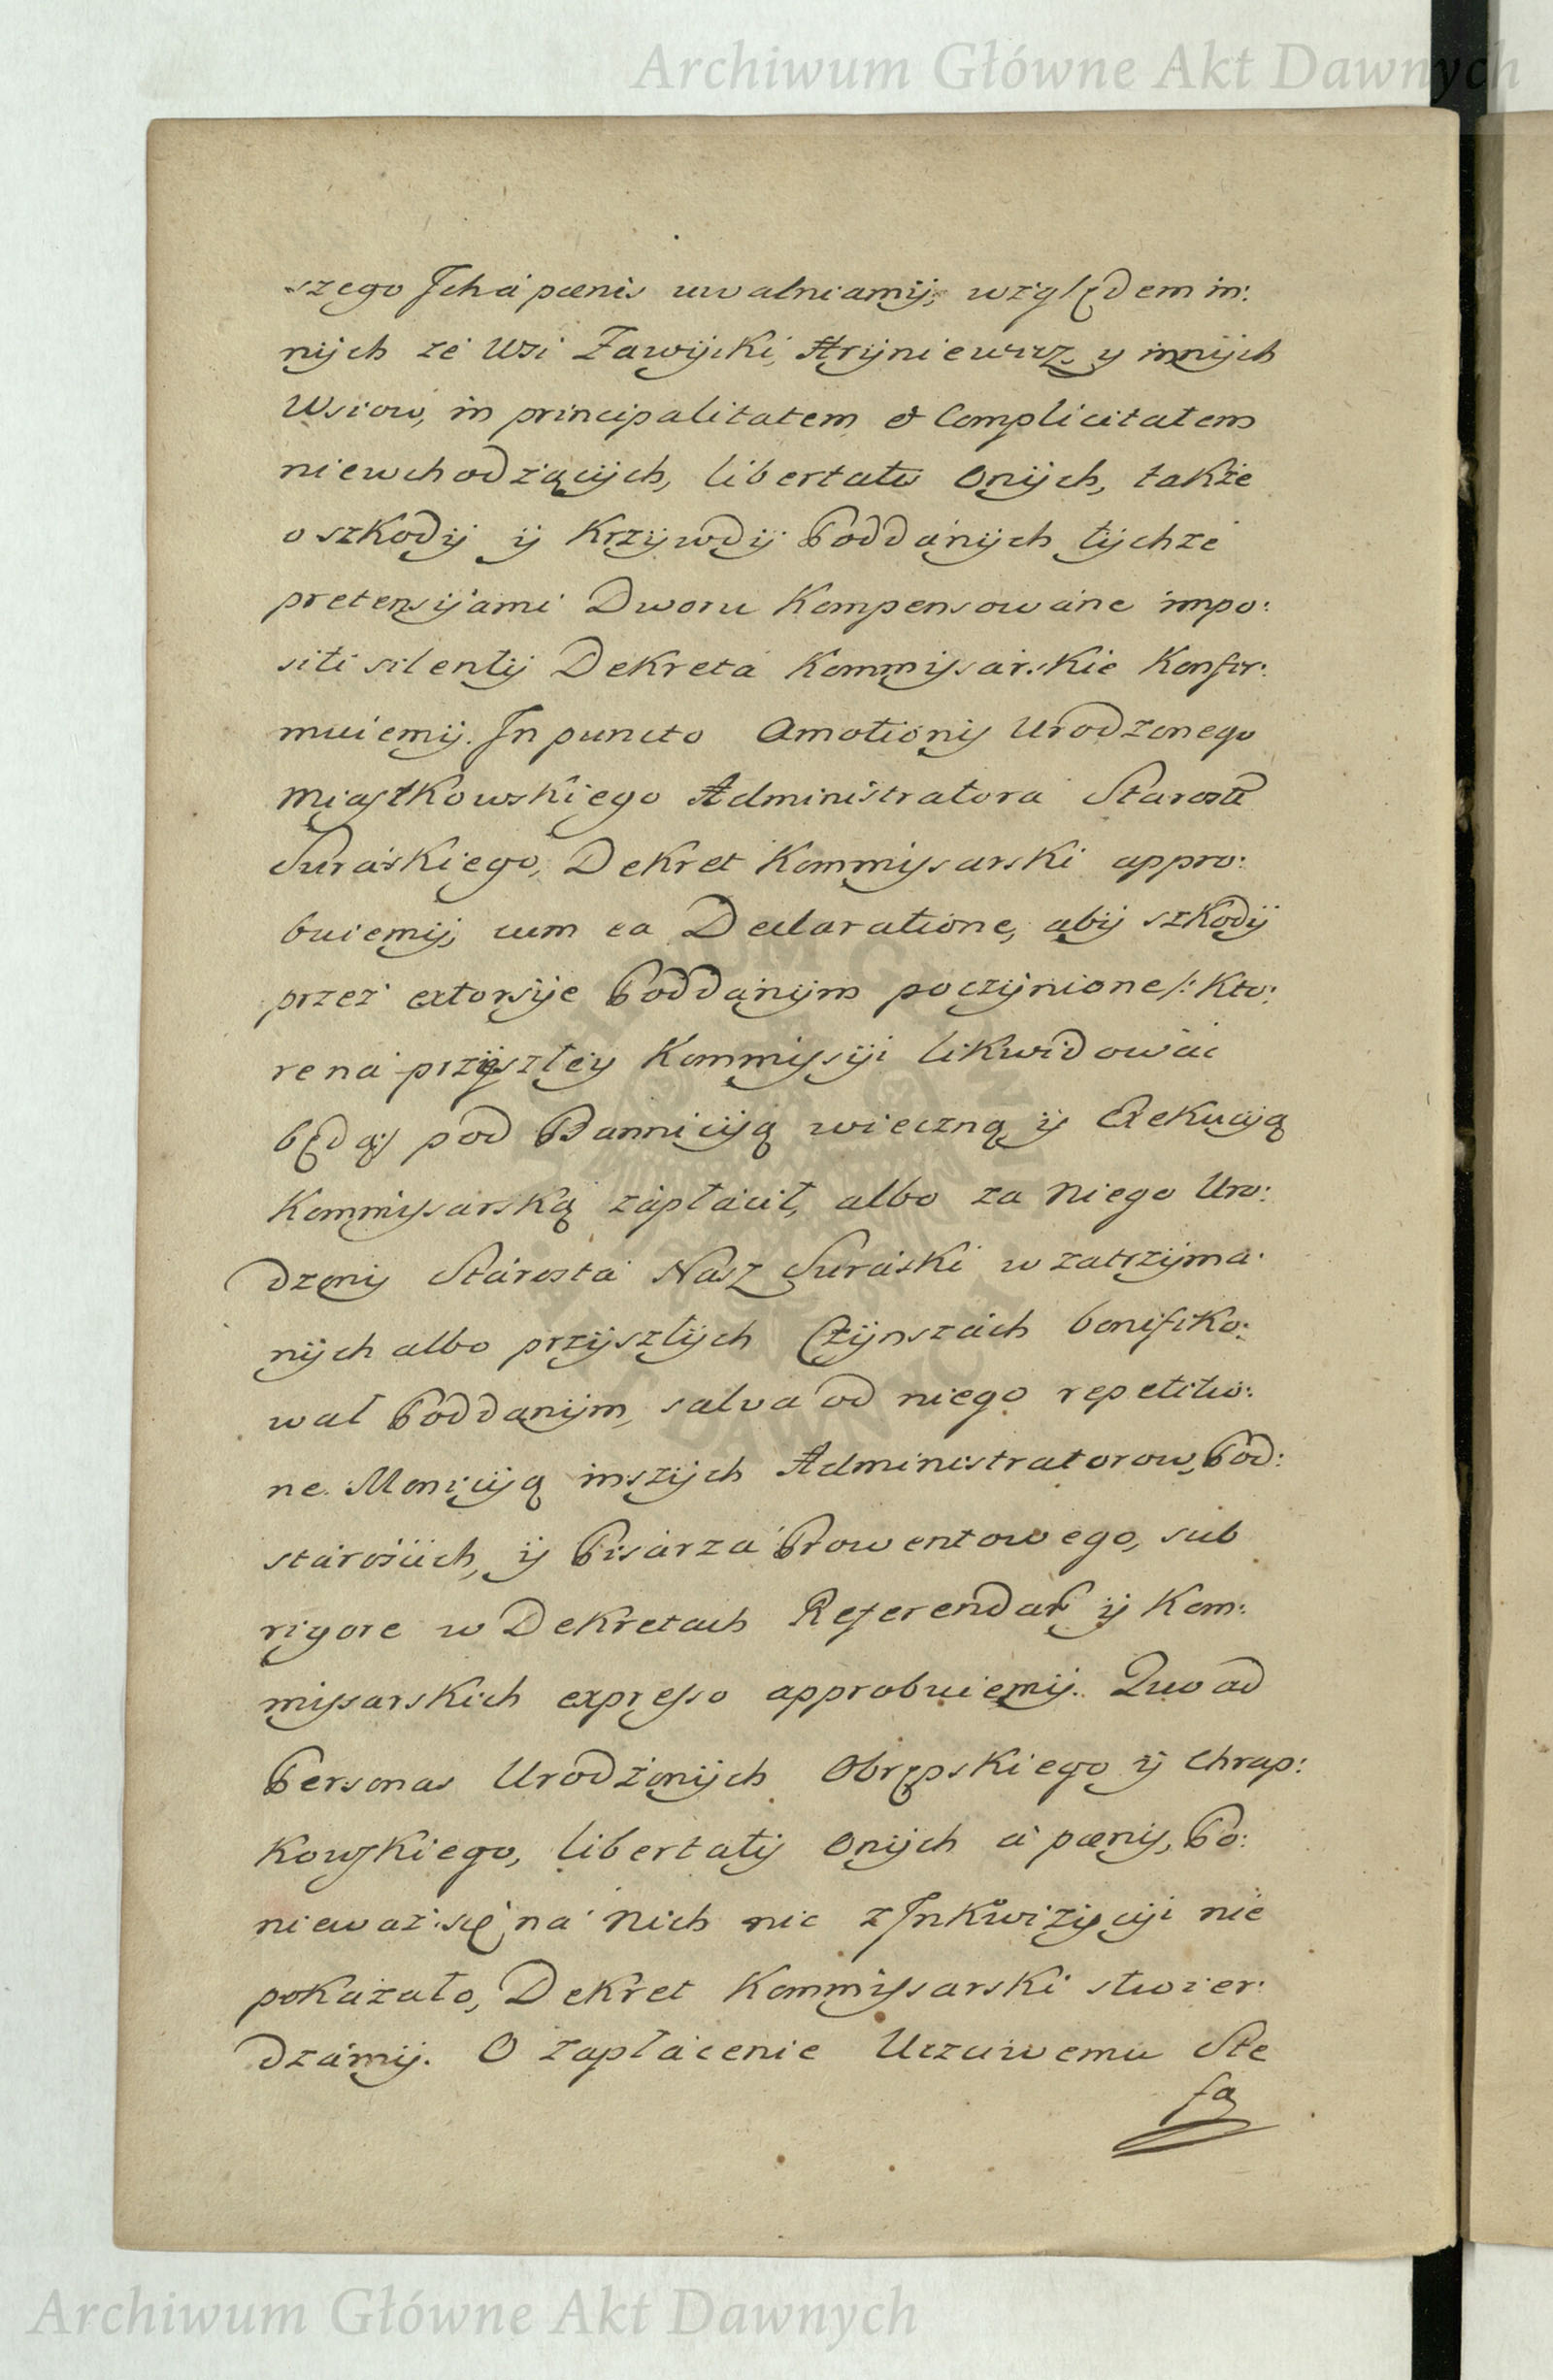 Archiwum Główne Akt Dawnych
szego Jch á pænis uwalniamÿ, względem in:
nÿch zé Wsi Zawÿcki, Hrÿniewicz, y innÿch
Wsiow, in principalitatem et Complicitatem
niewchodząċÿch, libertatis Onÿch, także
o szkodÿ ÿ Krzÿwdÿ Poddánÿch tÿchże
pretensÿámi Dworu Kompensowáne impo:
siti silentÿ Dekretá Kommissarskie Konfir:
muiemÿ. Jn puncto Amotionis Urodzonego
Miastkowskiego Administratora Starosta
Suráskiego, Dekret Kommissarski appro:
buiemÿ, cum ea Declaratione, abÿ szkodÿ
przez extorsÿe Poddanÿm poczÿnione /: Kto:
re ná przÿszłeÿ Kommissÿi likwidowáć
będą :/ pod Bannicÿą wieczną ÿ Exekucÿą
Kommissarską zápłácił, albo za Niego Uro:
dzonÿ Stárosta Nász Suráski w zatrzÿma:
nÿch albo przÿszłÿch Czÿnszách bonifiko:
wał Poddanÿm, salva od niego repetitio:
ne. Monicÿą inszÿch Administratorow, Pod:
stárościch, ÿ Pisárzá Prowentowego, sub
rigore w Dekretach Referendar ÿ Kom:
missarskich expresso approbuiemÿ. Quoad
Personas Urodzonÿch Obrępskiego ÿ Chrap:
kowskiego, libertatis Onÿch á pænis, Po:
nieważ się ná Nich nic z Jnkwizÿcÿi nie
pokázało, Dekret Kommissarski stwier:
dzámÿ. O zapłácenie Uczciwemu Ste
fa
Archiwum Główne Akt Dawnych